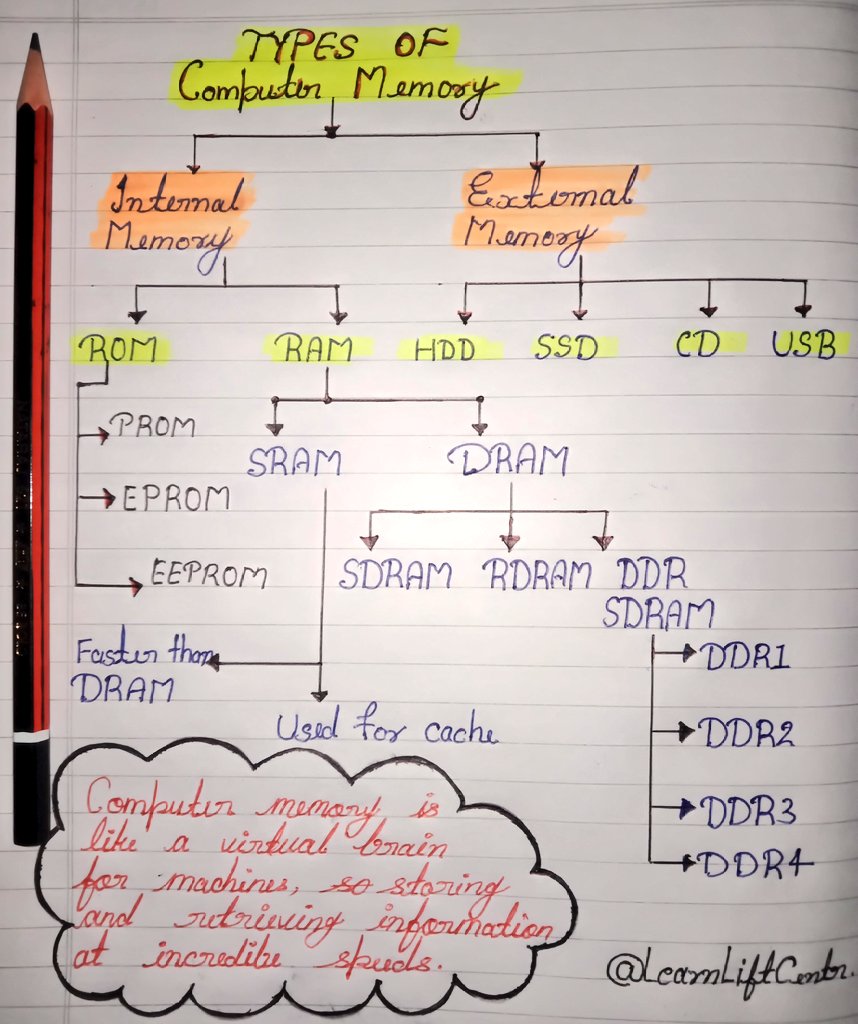 TYPES OF
Computer Memory
Internal
Memory
External
Memory
ROM RAM HDD SSD CD USB
PROM
EPROM
EEPROM
SRAM DRAM
SDRAM RDRAM DDR
SDRAM
Faster than
DRAM
Used for cache
DDR1
DDR2
DDR3
DDR4
Computer memory is
like a virtual brain
for machines, so storing
and retrieving information
at incredibe speeds.
@LearnLiftCentr.